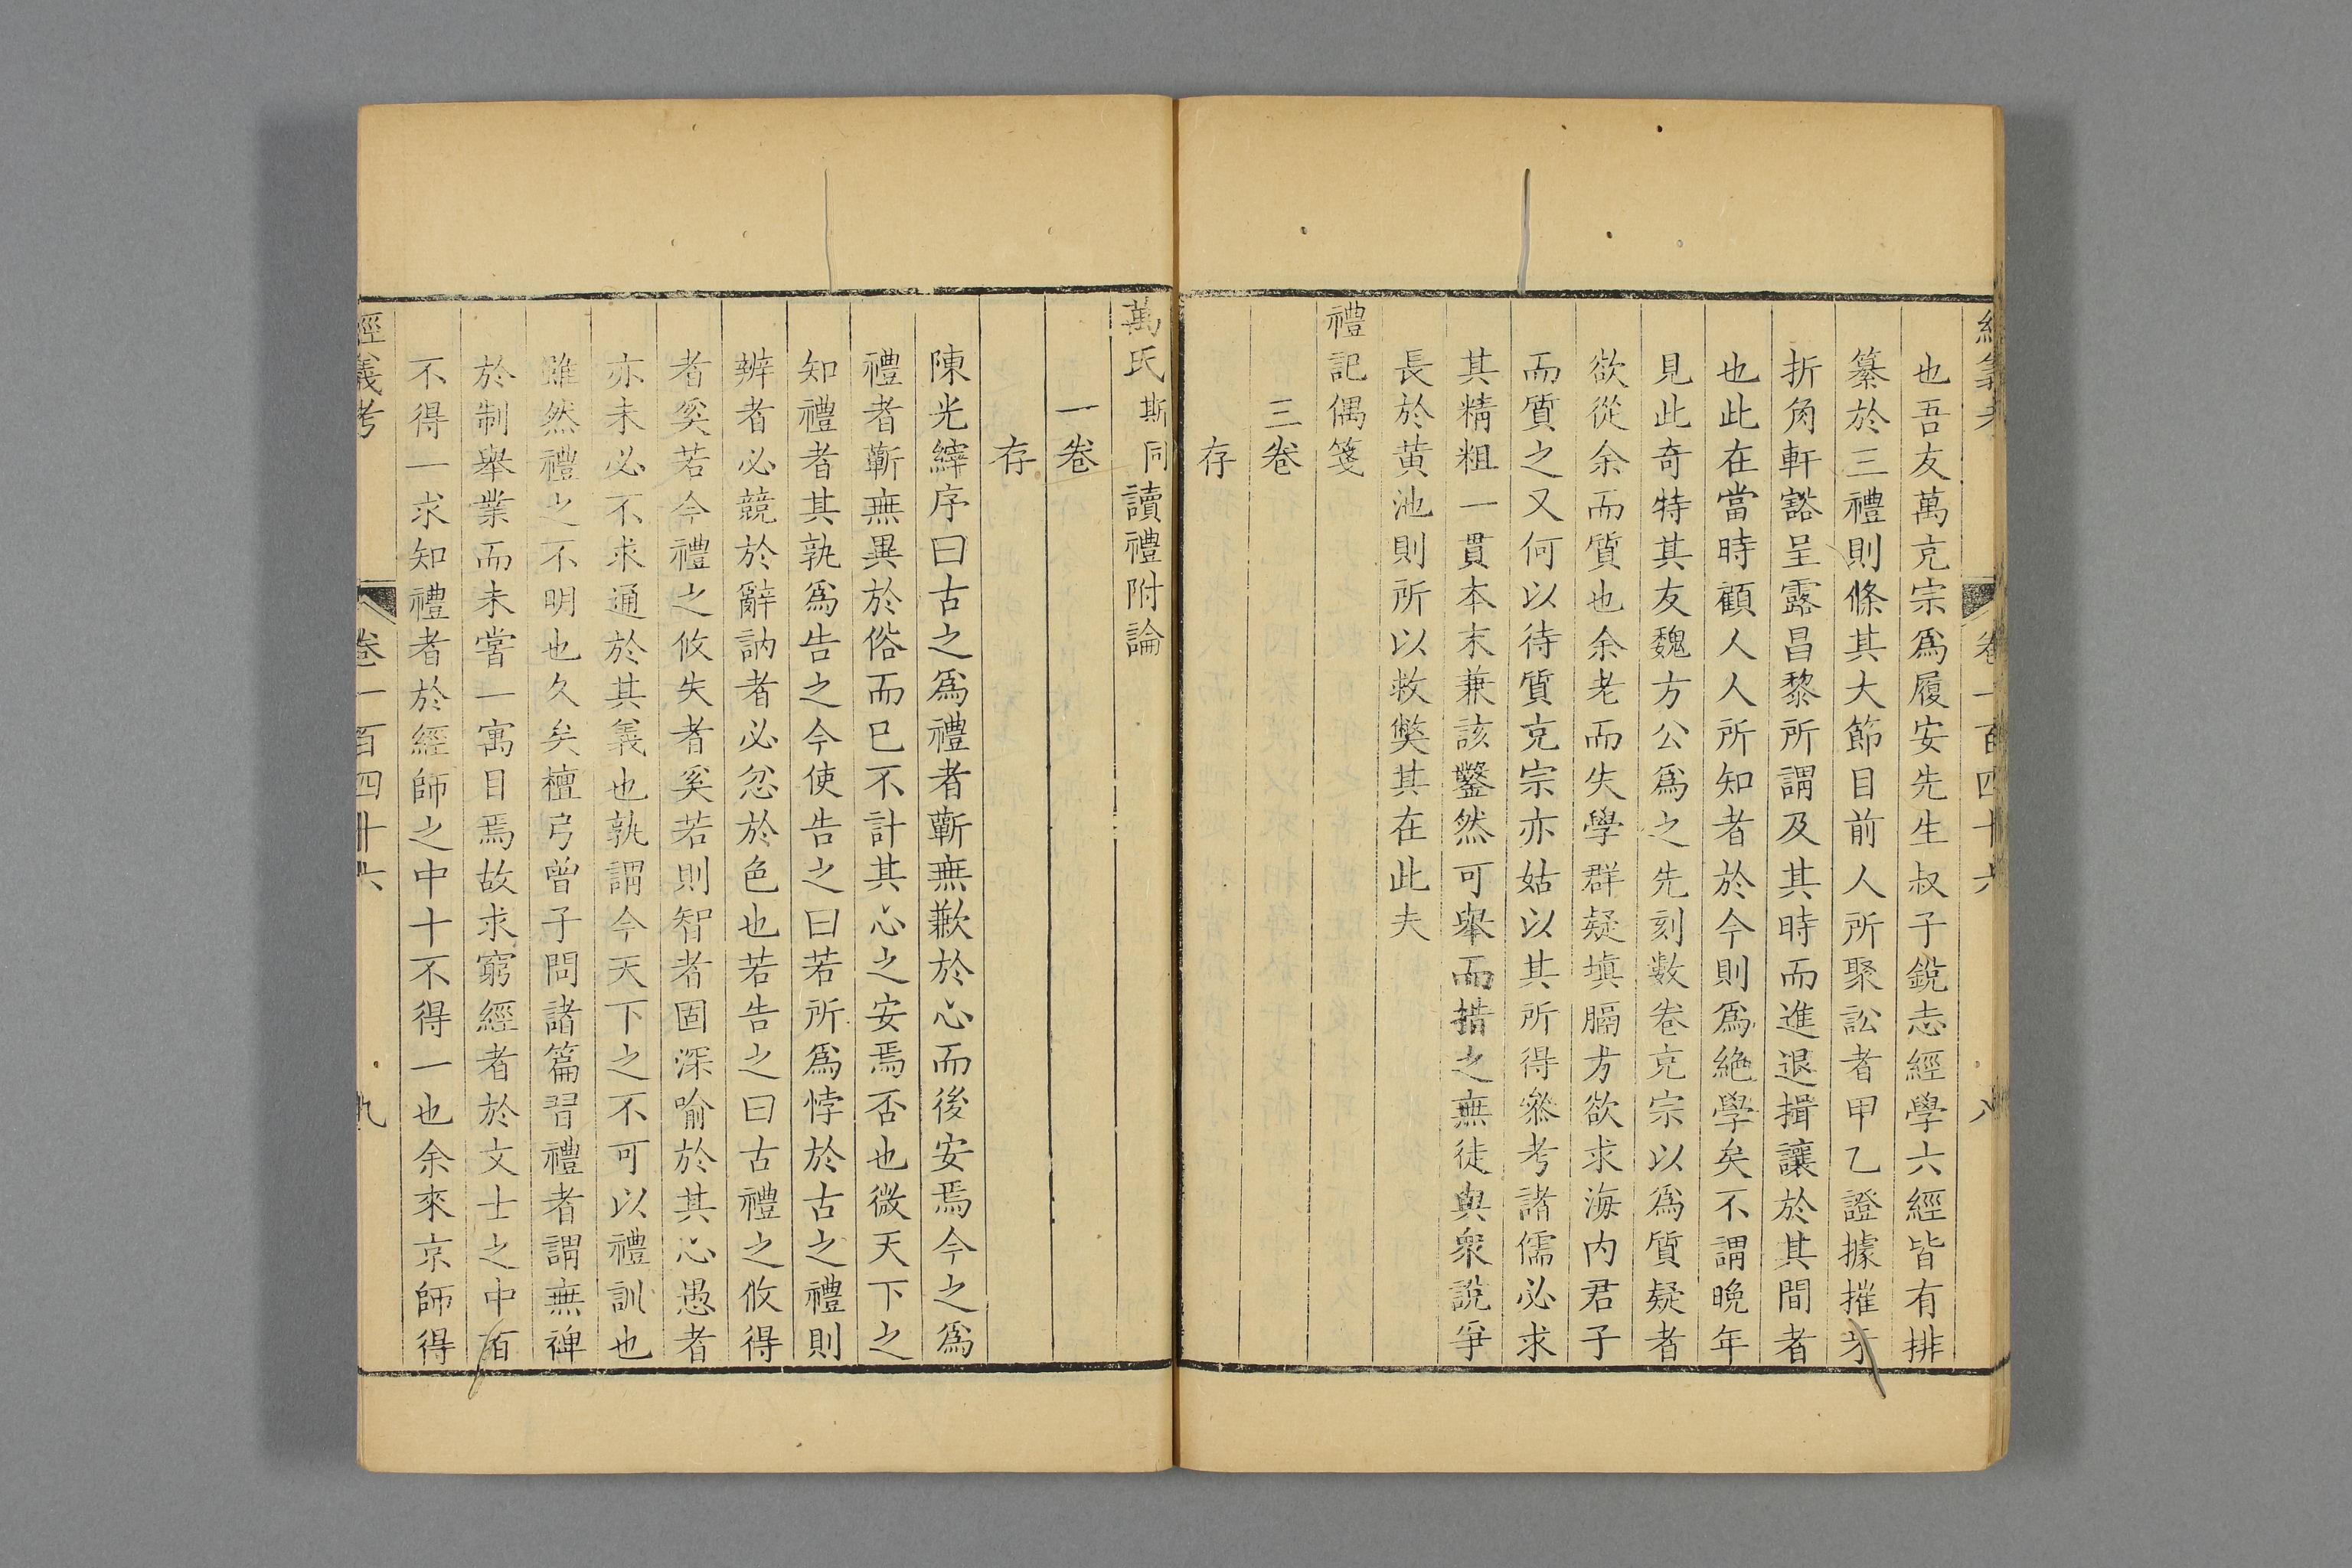 經義考 卷一百四十六 八
也吾友萬充宗爲履安先生叔子銳志經學六經皆有排
纂於三禮則條其大節目前人所聚訟者甲乙證據摧牙
折角軒豁呈露昌黎所謂及其時而進退揖讓於其間者
也此在當時顧人人所知者於今則爲絶學矣不謂晚年
見此奇特其友魏方公爲之先刻數卷充宗以爲質疑者
欲從余而質也余老而失學群疑塡膈方欲求海內君子
而質之又何以待質充宗亦姑以其所得叅考諸儒必求
其精粗一貫本末兼該鑿然可舉而措之無徒與衆說爭
長於黃池則所以救獘其在此夫
禮記偶箋
三卷
存
萬氏斯同讀禮附論
一卷
存
陳光縡序曰古之爲禮者蘄無歉於心而後安焉今之爲
禮者蘄無異於俗而已不計其心之安焉否也微天下之
知禮者其孰爲告之今使告之曰若所爲悖於古之禮則
辨者必競於辭訥者必忿於色也若告之曰古禮之攸得
者奚若今禮之攸失者奚若則智者固深喻於其心愚者
亦未必不求通於其義也孰謂今天下之不可以禮訓也
雖然禮之不明也久矣檀弓曾子問諸篇習禮者謂無裨
於制舉業而未嘗一寓目焉故求窮經者於文士之中百
不得一求知禮者於經師之中十不得一也余來京師得
經義考 卷一百四十六 九